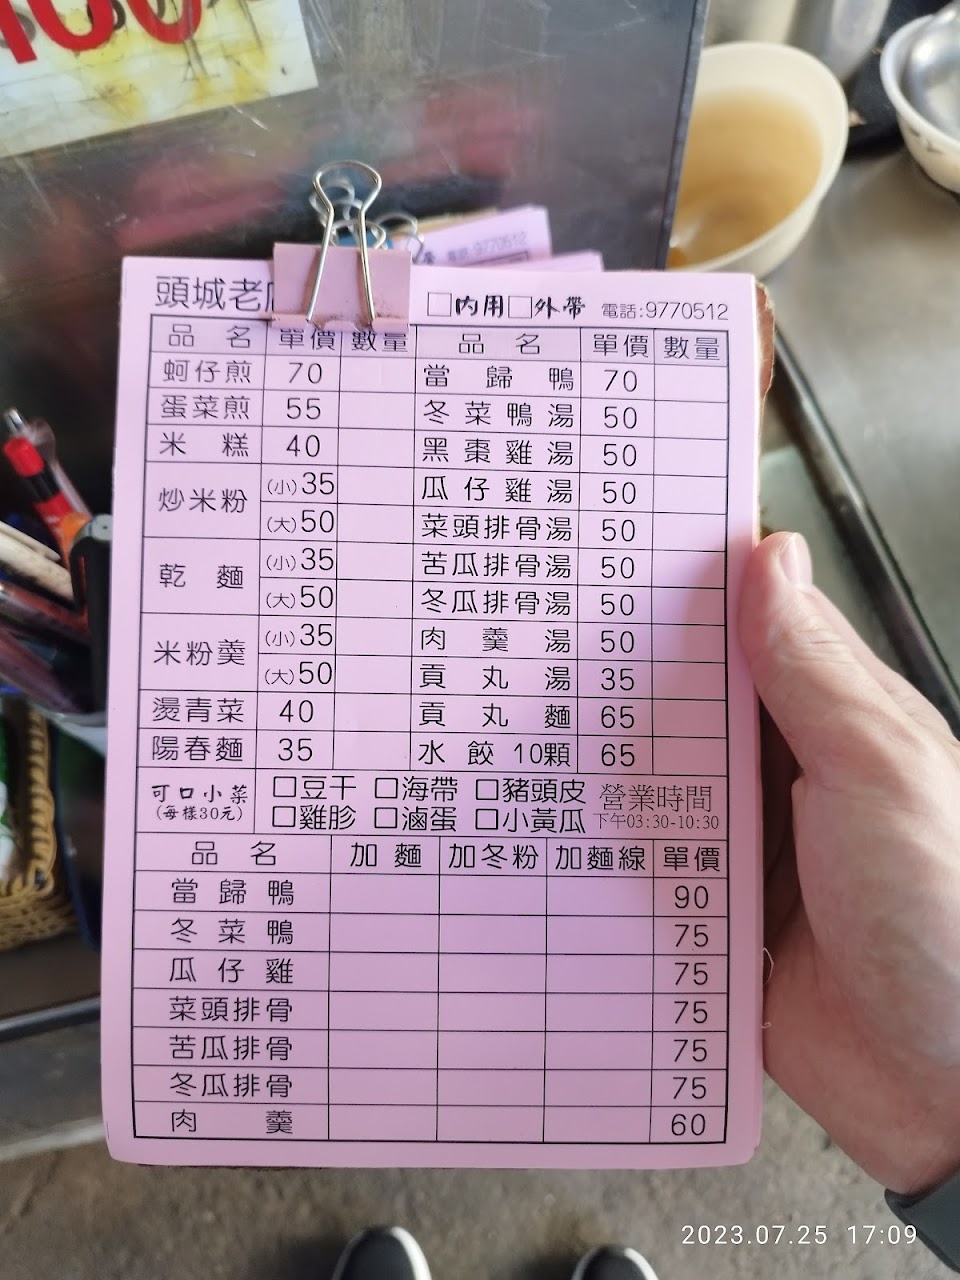 100
電話:9770512
頭城老
□內用□外帶 電話:9770512
品名 單價 數量 品名 單價 數量
蚵仔煎 70 當歸鴨 70
蛋菜煎 55 冬菜鴨湯 50
米糕 40 黑棗雞湯 50
炒米粉 (小)35 瓜仔雞湯 50
(大)50 菜頭排骨湯 50
乾麵 (小)35 苦瓜排骨湯 50
(大)50 冬瓜排骨湯 50
米粉羹 (小)35 肉羹湯 50
(大)50 貢丸湯 35
燙青菜 40 貢丸麵 65
陽春麵 35 水餃10顆 65
可口小菜 □豆干 □海帶 □豬頭皮 營業時間
(每樣30元) □雞胗 □滷蛋 □小黃瓜 下午03:30-10:30
品名 加麵 加冬粉 加麵線 單價
當歸鴨 90
冬菜鴨 75
瓜仔雞 75
菜頭排骨 75
苦瓜排骨 75
冬瓜排骨 75
肉羹 60
2023.07.25 17:09